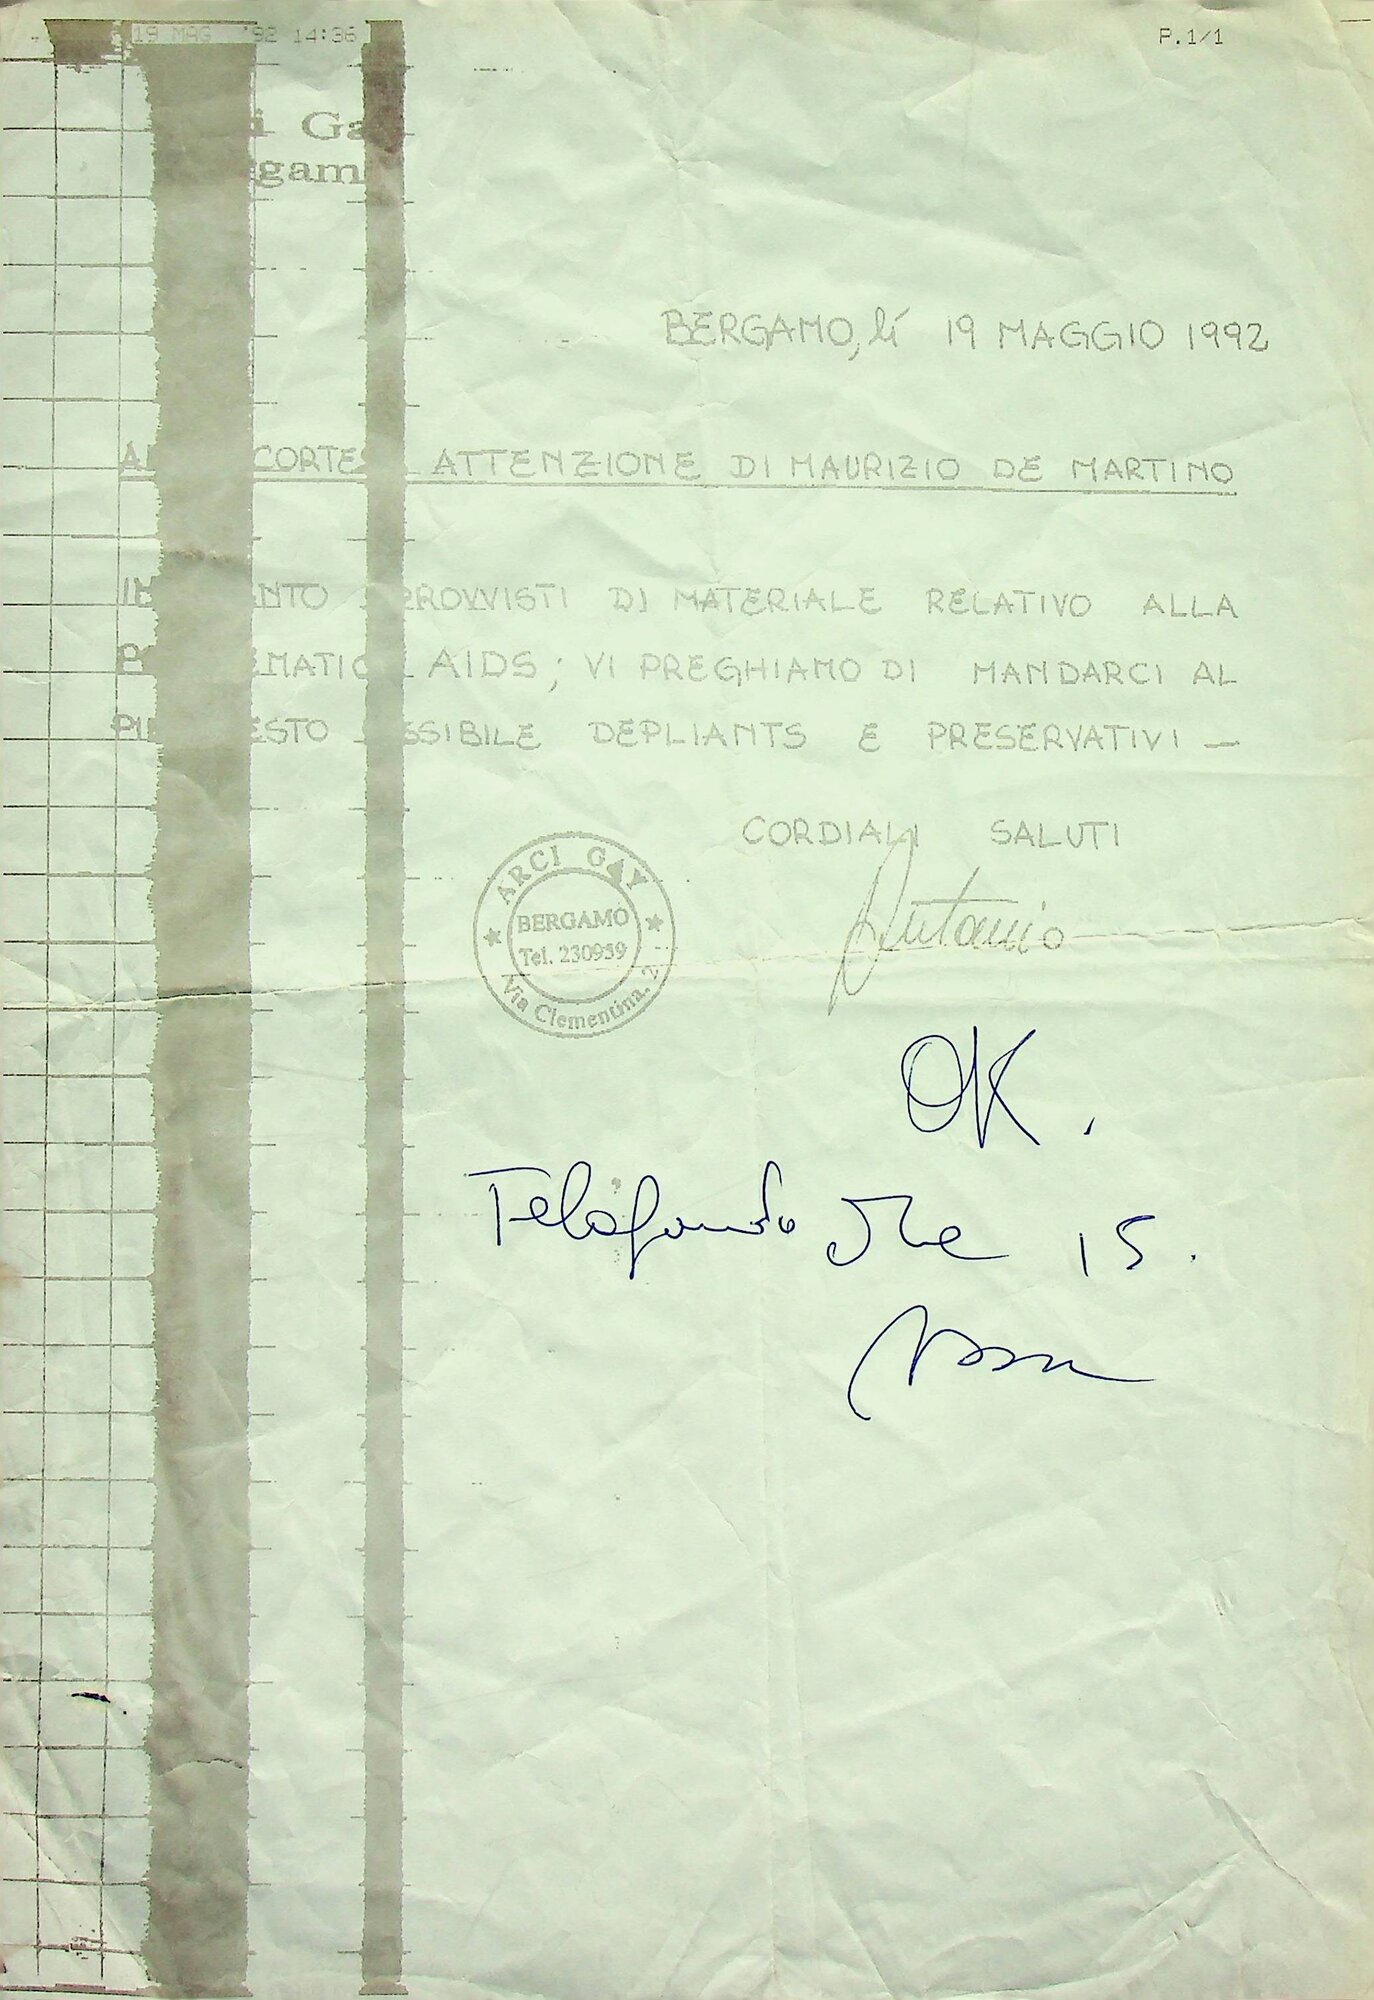 19 MAG '92 14:36 P.1/1
i Ga
gam
BERGAMO, lì 19 MAGGIO 1992
CORTE ATTENZIONE DI MAURIZIO DE MARTINO
NTO PROVVISTI DI MATERIALE RELATIVO ALLA
EMATIC AIDS; VI PREGHIAMO DI MANDARCI AL
PIÙ ESTO SSIBILE DEPLIANTS E PRESERVATIVI —
CORDIALI SALUTI
Antonio
ARCI GAY
BERGAMO
Tel. 230959
Via Clementina, 2
OK.
Telefonato Ore 15.